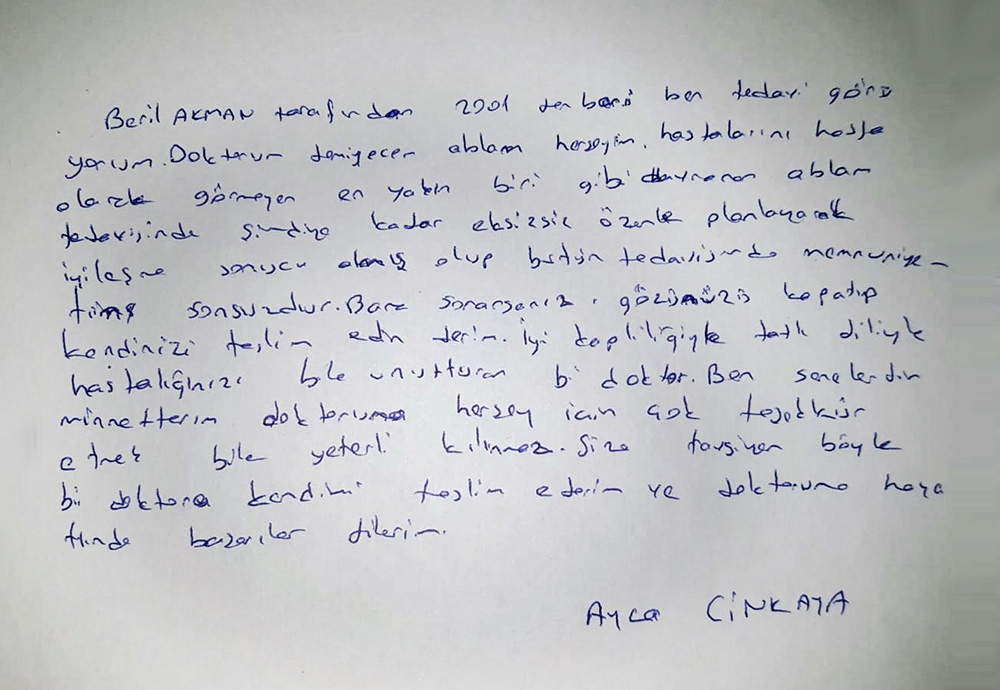 Beril AKMAN tarafından 2001 den beri ben tedavi görü
yorum. Doktorum demiyecem ablam herşeyim. hastalarını hasta
olarak görmeyen en yakın biri gibi davranan ablam
tedavisinde şimdiye kadar eksizsiz özenle planlayarak
iyileşme sonucu almış olup bütün tedavisinde memnuniye-
tim sonsuzdur. Bana sorarsanız, gözünüzü kapatıp
kendinizi teslim edin derim. İyi kaplılığiyle tatlı diliyle
hastalığınızı bile unutturan bi doktor. Ben senelerdin
minnettarım doktoruma herşey için çok teşekkür
etmek bile yeterli kılınmaz. Size tavsiyen böyle
bi doktora kendimi teslim ederim ve doktoruma haya
tında başarılar dilerim.
Ayca CİNKAYA